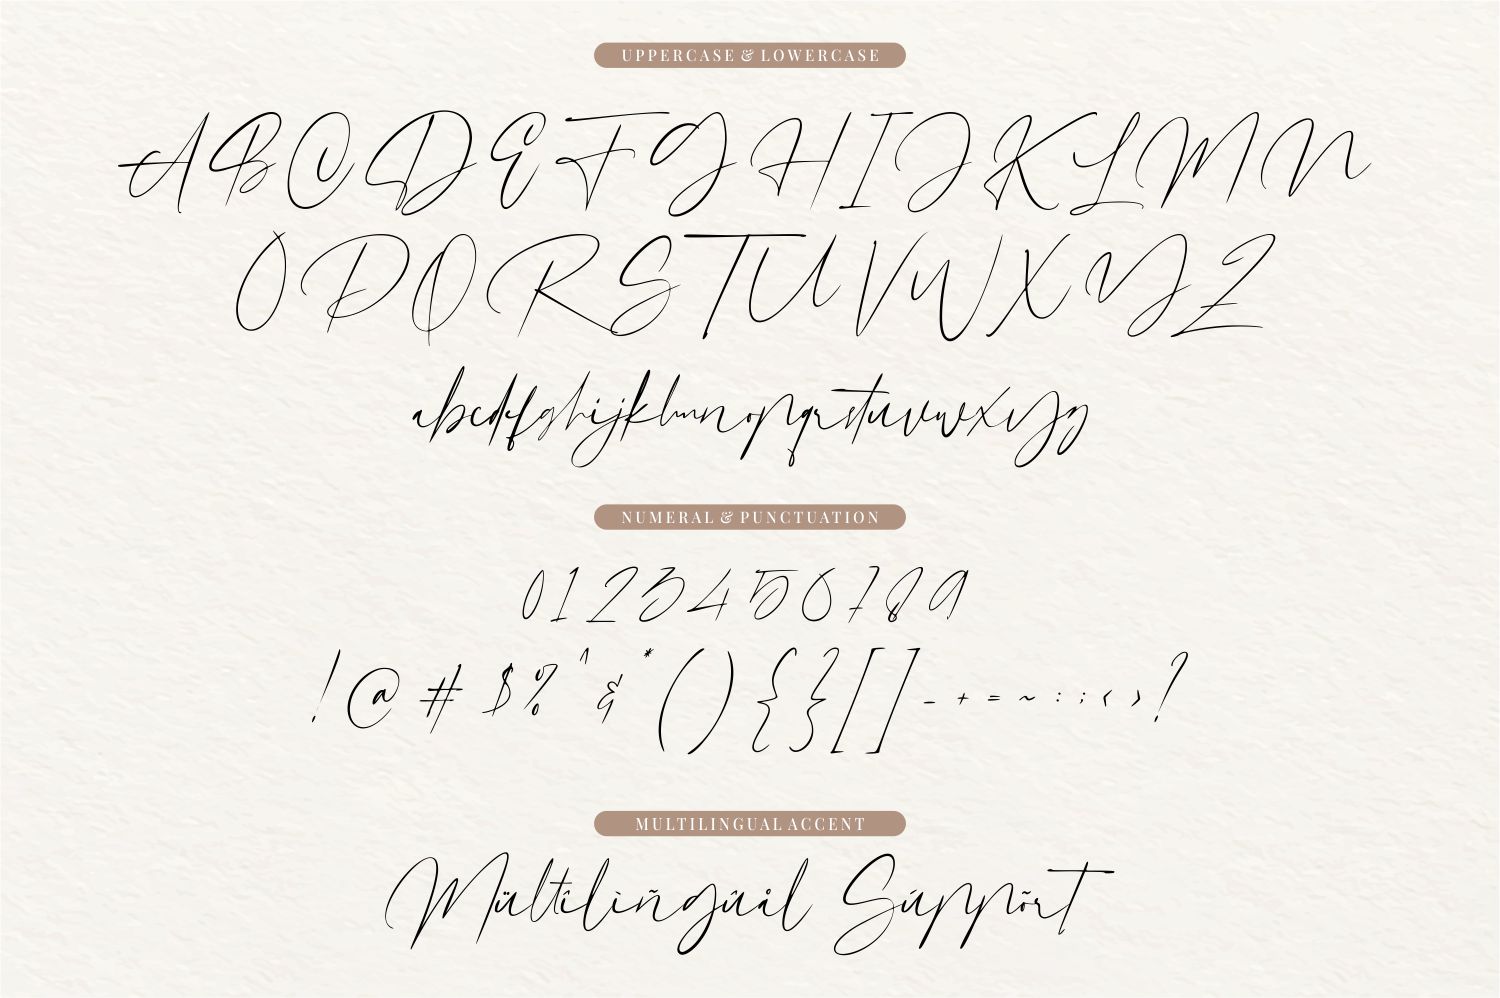 UPPERCASE & LOWERCASE
ABCDEFGHIJKLMN
OPQRSTUVWXYZ
abcdefghijklmnopqrstuvwxyz
NUMERAL & PUNCTUATION
0123456789
!@#$%^&*(){}[]-+=~:;<>?
MULTILINGUAL ACCENT
Mültîlìñgûål Súppõrt